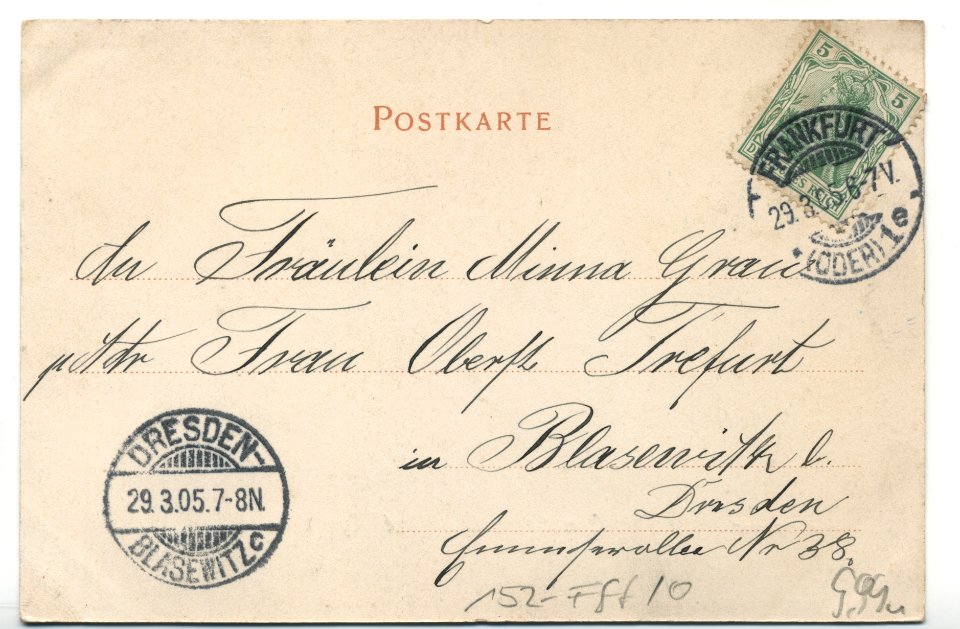 POSTKARTE
5 5
FRANKFURT
29.3. 6-7V.
(ODER) 1e
An Fräulein Minna Grau
p. Adr Frau Oberst Trefurt
in Blasewitz b.
Dresden
Nr 38.
DRESDEN-
29.3.05.7-8N.
BLASEWITZ c
152-Fff/0